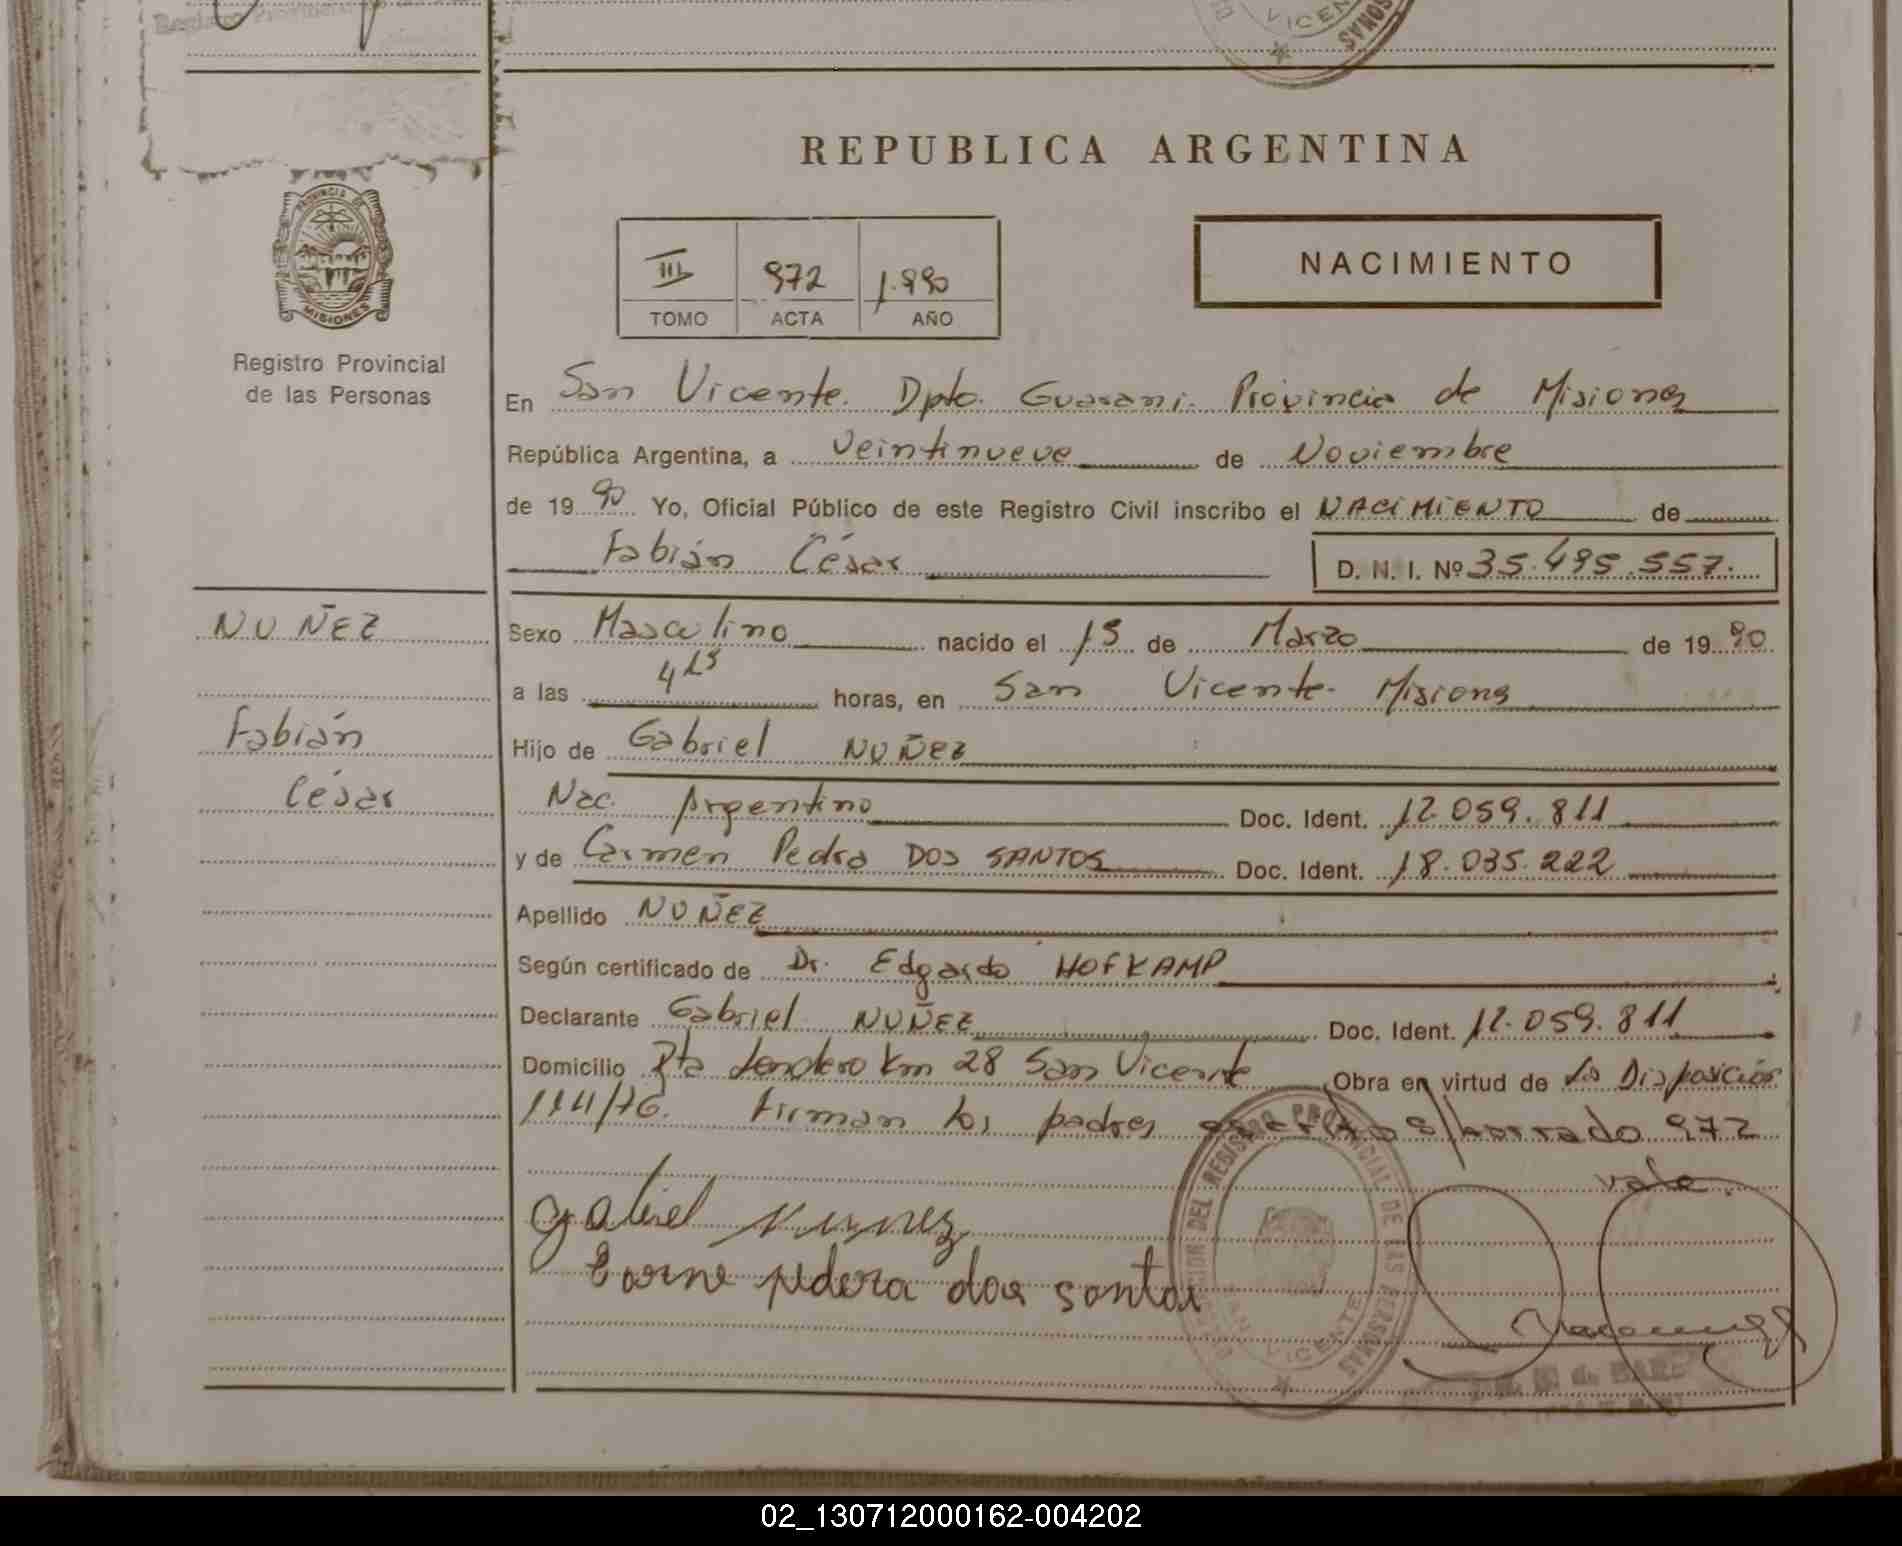 REPUBLICA ARGENTINA
PROVINCIA DE
MISIONES
Registro Provincial
de las Personas
III 972 1.990
TOMO ACTA AÑO
NACIMIENTO
En San Vicente. Dpto. Guarani. Provincia de Misiones
República Argentina, a veintinueve de Noviembre
de 19 90 Yo, Oficial Público de este Registro Civil inscribo el NACIMIENTO de
Fabián César D. N. I. Nº 35.495.557.
NUÑEZ
Fabián
César
Sexo Masculino nacido el 15 de Marzo de 19 90
a las 4 15 horas, en San Vicente. Misiones
Hijo de Gabriel NUÑEZ
Nac. Argentino Doc. Ident. 12.059.811
y de Carmen Pedra DOS SANTOS Doc. Ident. 18.035.222
Apellido NUÑEZ
Según certificado de Dr. Edgardo HOFKAMP
Declarante Gabriel NUÑEZ Doc. Ident. 12.059.811
Domicilio Pta Londero Km 28 San Vicente Obra en virtud de la Disposición
114/76. Firman los padres s/borrado 972
vale.
gabriel nunez
Carne pedera dos santos
REGISTRO PROVINCIAL DE LAS PERSONAS
SAN VICENTE
02_130712000162-004202